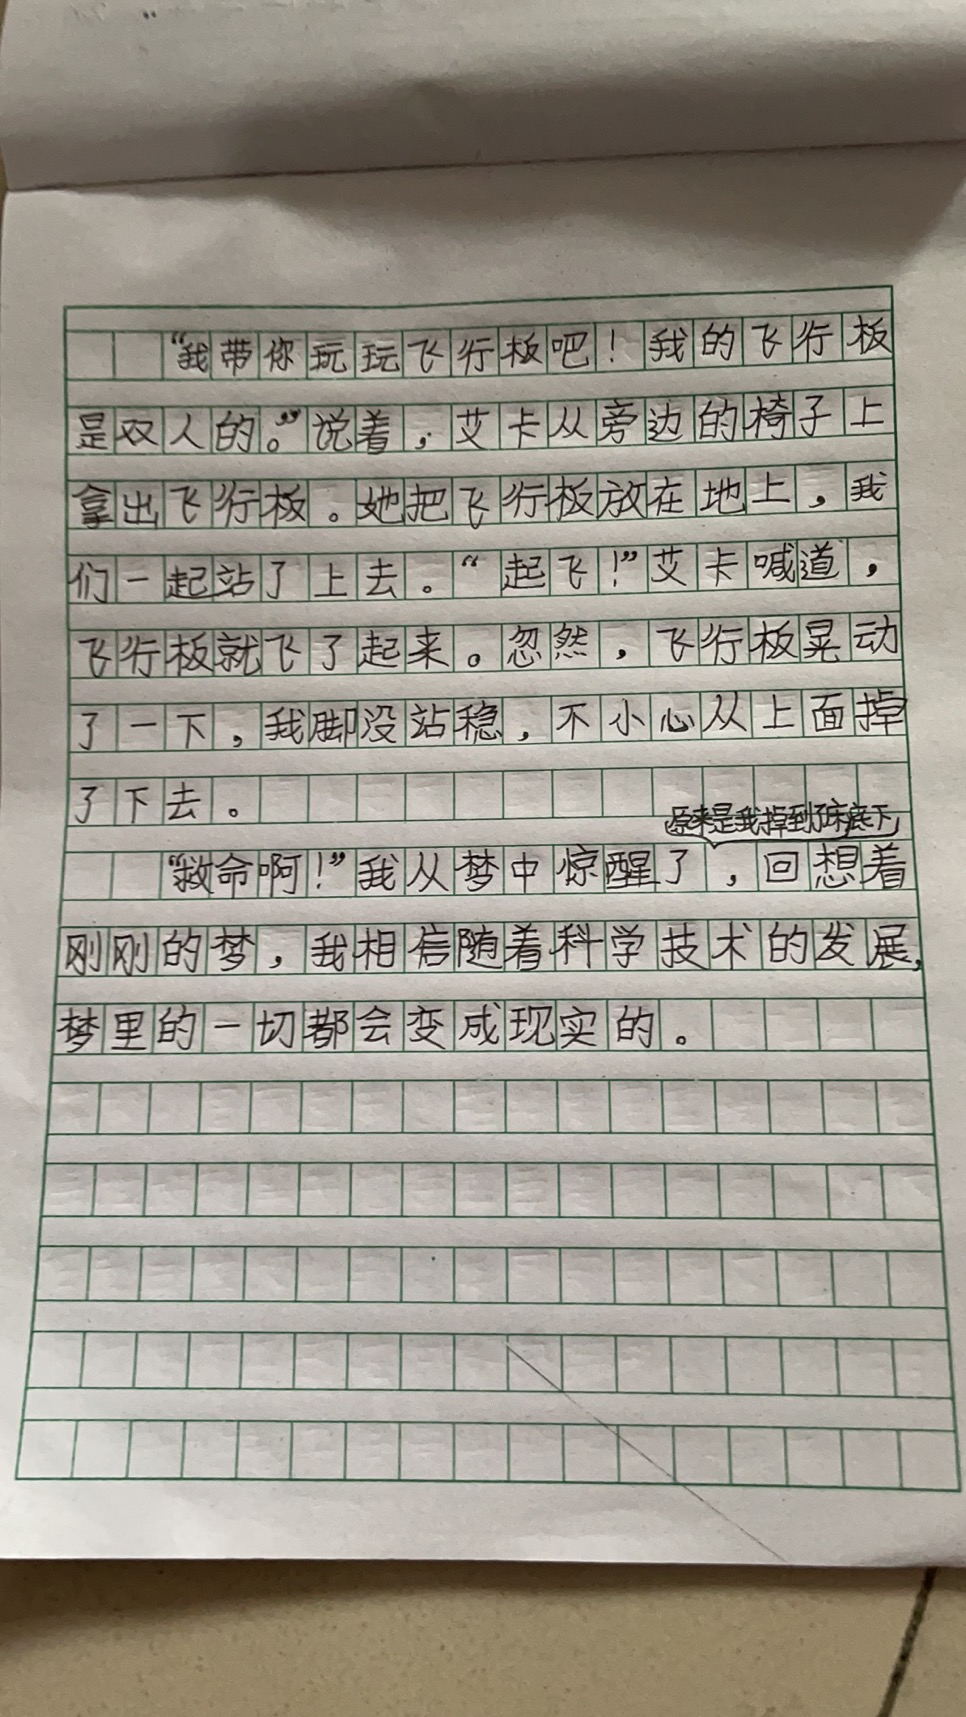 “我带你玩玩飞行板吧！我的飞行板
是双人的。”说着，艾卡从旁边的椅子上
拿出飞行板。她把飞行板放在地上，我
们一起站了上去。“起飞！”艾卡喊道，
飞行板就飞了起来。忽然，飞行板晃动
了一下，我脚没站稳，不小心从上面掉
了下去。
原来是我掉到了床底下
“救命啊！”我从梦中惊醒了，回想着
刚刚的梦，我相信随着科学技术的发展，
梦里的一切都会变成现实的。